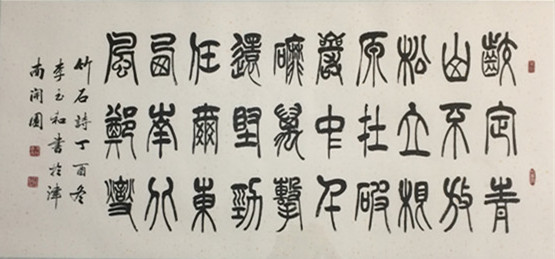 齩定青
山不放
松立根
原在破
巖中千
磨萬擊
還堅勁
任爾東
西南北
風鄭燮
竹石詩丁酉冬
李玉和書於津
南開園